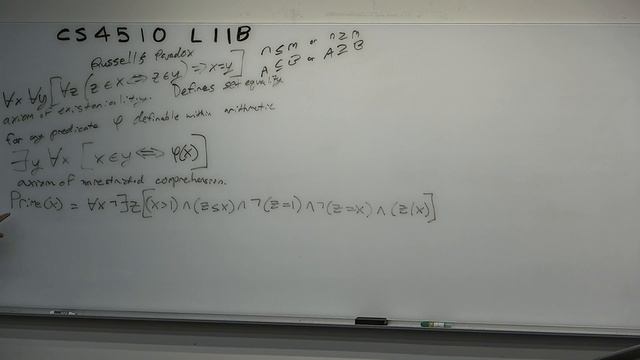 CS4510 L11B
Russell's Paradox
n ≤ m or n ≥ m
A ⊆ B or A ⊇ B
∀x ∀y [∀z (z ∈ x ⇔ z ∈ y) ⇒ x=y] Defines set equality
axiom of extensionality.
for any predicate φ definable within arithmetic
∃y ∀x [x ∈ y ⇔ φ(x)]
axiom of unrestricted comprehension.
Prime(x) = ∀x ¬∃z[(x>1) ∧ (z≤x) ∧ ¬(z=1) ∧ ¬(z=x) ∧ (z|x)]